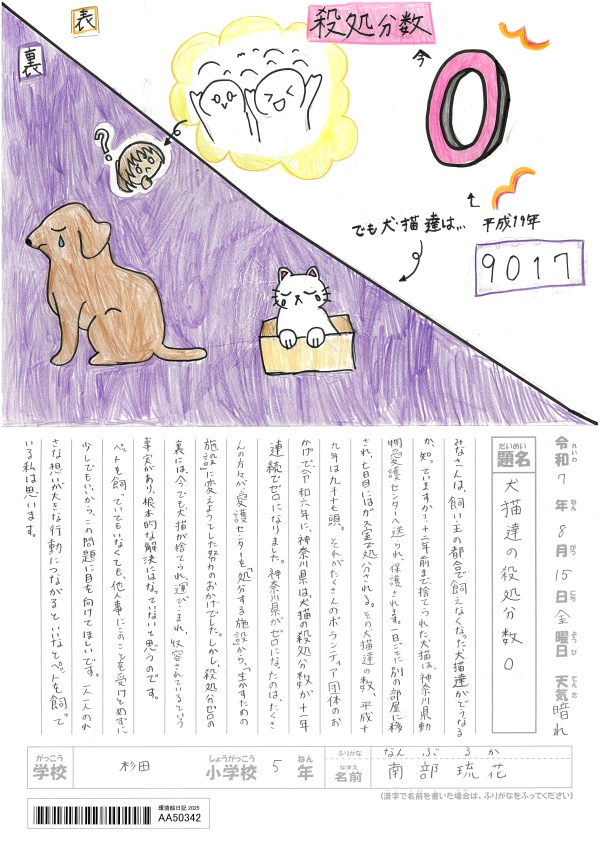 表
裏
殺処分数
今
0
?
でも犬猫達は...
平成19年
9017
令和7年8月15日金曜日 天気 晴れ
れいわ ねん がつ にち ようび てんき
だいめい
題名 犬猫達の殺処分数0
みなさんは、飼い主の都合で飼えなくなった犬猫達がどうなる
か、知っていますか?十二年前まで捨てられた犬猫は、神奈川県動
物愛護センターへ送られ、保護されます。一日ごとに別の部屋に移
され、七日目にはガス室で処分される。その犬猫達の数、平成十
九年は九千十七頭。それがたくさんのボランティア団体のお
かげで、令和六年に、神奈川県は、犬猫の殺処分数が十一年
連続でゼロになりました。神奈川県がゼロになったのは、たくさ
んの方々が、愛護センターを「処分する施設」から、「生かすための
施設」に変えようとした努力のおかげでした。しかし、殺処分ゼロの
裏には、今でも犬猫が捨てられ、運びこまれ、収容されているという
事実があり、根本的な解決にはなっていないと思うのです。
ペットを飼っていてもいなくても、他人事にこのことを受けとめずに
少しでもいいから、この問題に目を向けてほしいです。一人一人の小
さな想いが大きな行動につながるといいなとペットを飼って
いる私は思います。
がっこう しょうがっこう ねん ふりがな なんぶ るか
学校 杉田 小学校 5 年 なまえ 名前 南部 琉花
(漢字で名前を書いた場合は、ふりがなをふってください)
環境絵日記 2025
AA50342